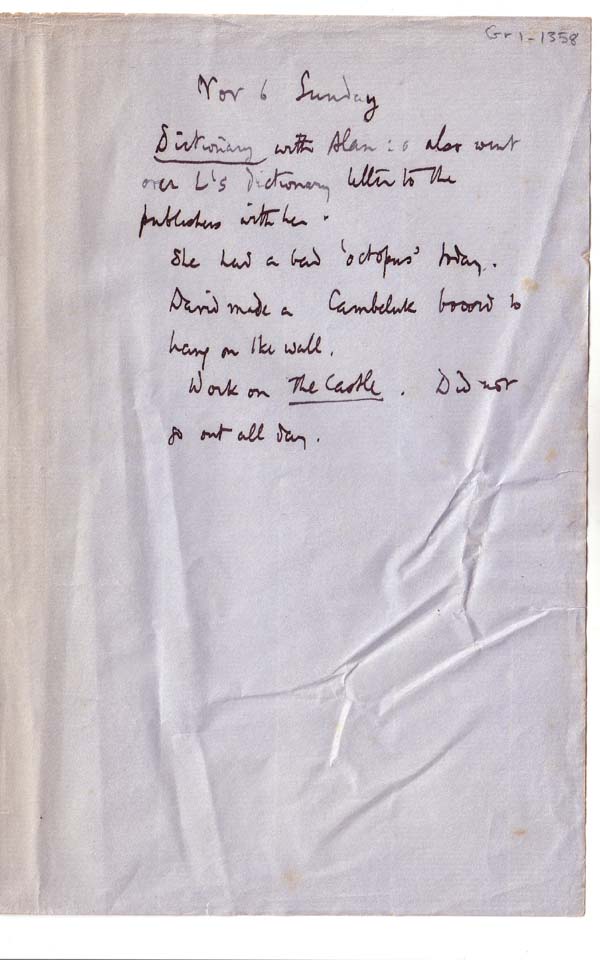 Gr1-1358
Nov 6 Sunday
Dictionary with Alan : also went
over L's dictionary letter to the
publishers with her.
She had a bad 'octopus' today.
David made a Cambeluk board to
hang on the wall.
Work on The Castle. Did not
go out all day.